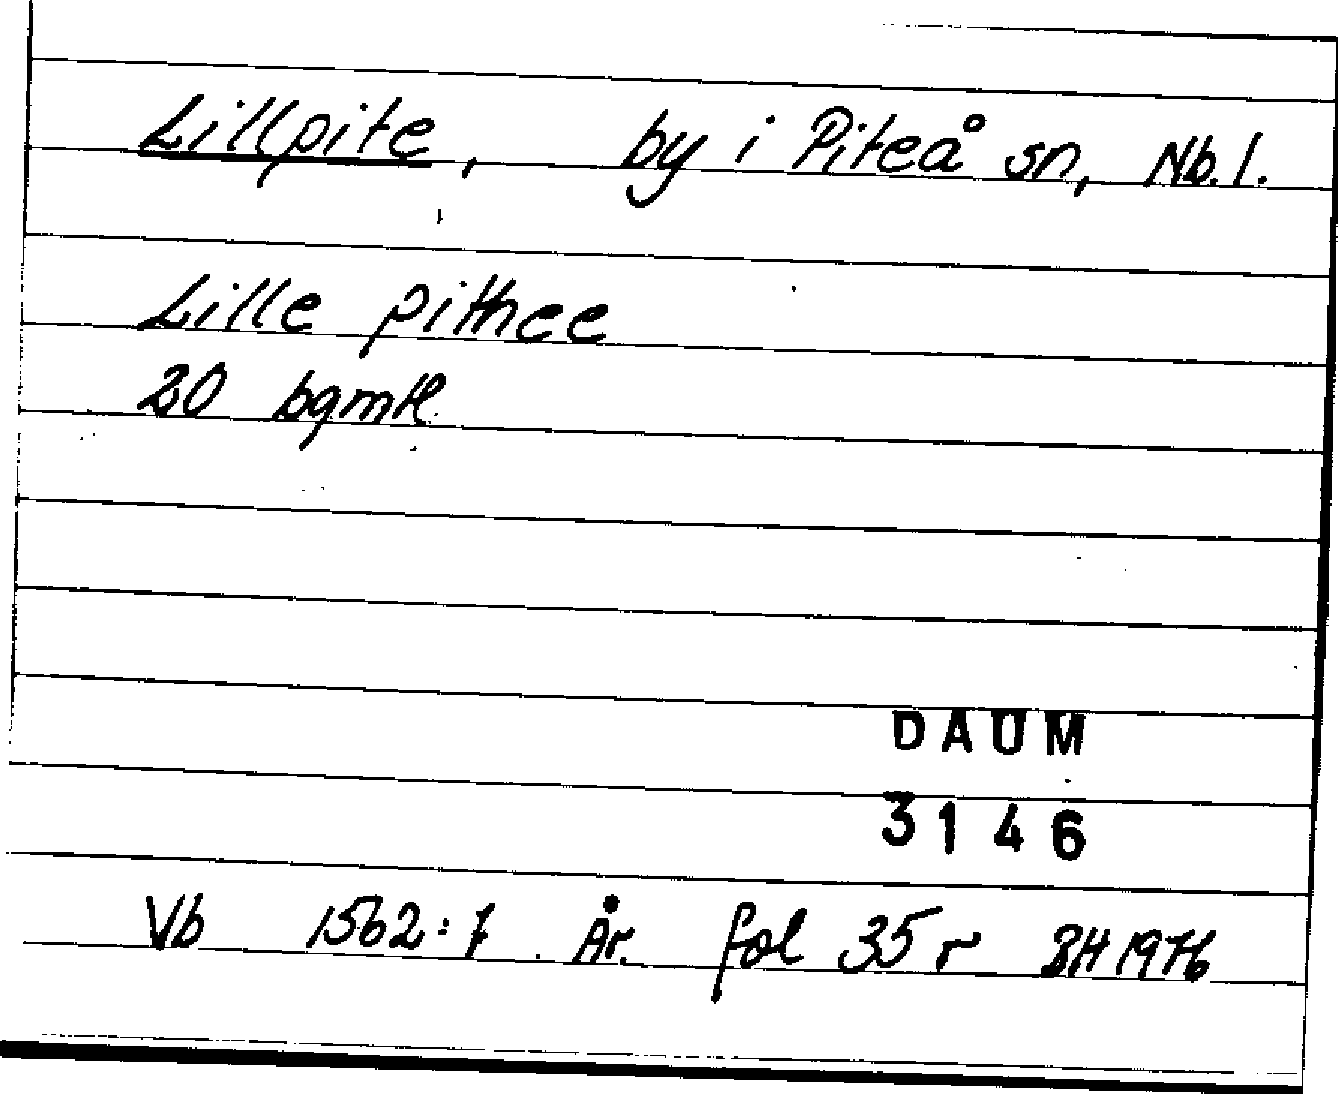 Lillpite, by i Piteå sn, Nb. l.
Lille pithee
20 bgmtl.
DAUM
3146
Vb 1562:7 År. fol 35 r BH 1976